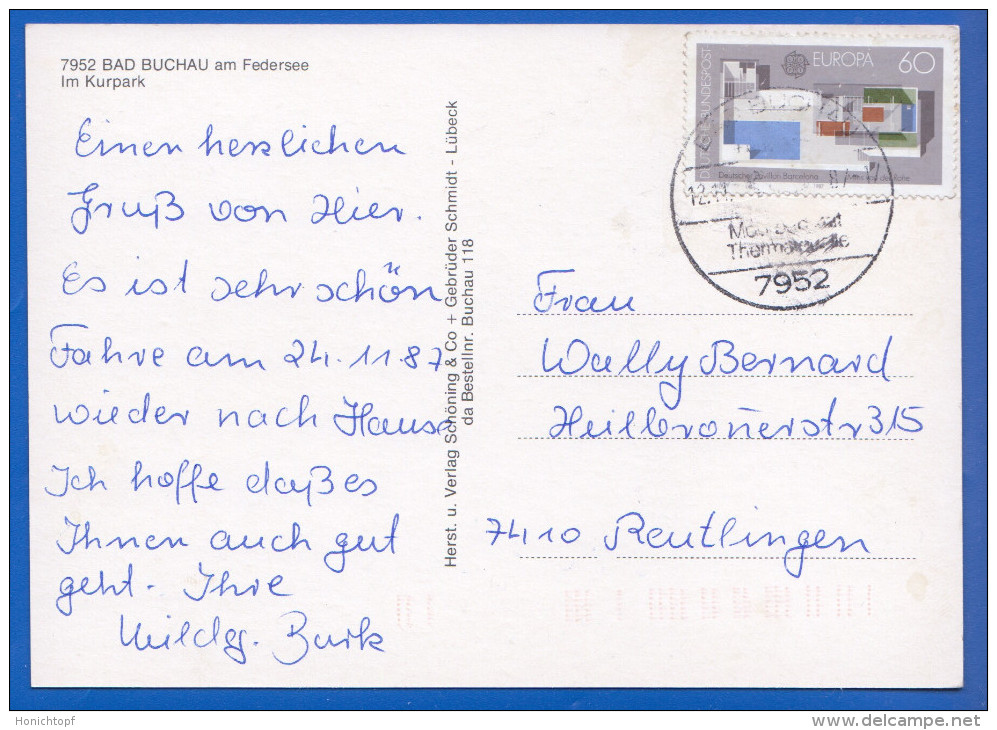 7952 BAD BUCHAU am Federsee
Im Kurpark
Einen herzlichen
Gruß von Hier.
Es ist sehr schön
Fahre am 24.11.87
wieder nach Hause
Ich hoffe daß es
Ihnen auch gut
geht. Ihre
Hildeg. Burk
Herst. u. Verlag Schöning & Co + Gebrüder Schmidt - Lübeck
da Bestellnr. Buchau 118
DEUTSCHE BUNDESPOST
EUROPA 60
Deutscher Pavillon Barcelona
12.11.
Thermalquelle
7952
Frau
Wally Bernard
Heilbronnerstr 315
7410 Reutlingen
Honichtopf
delcampe.net